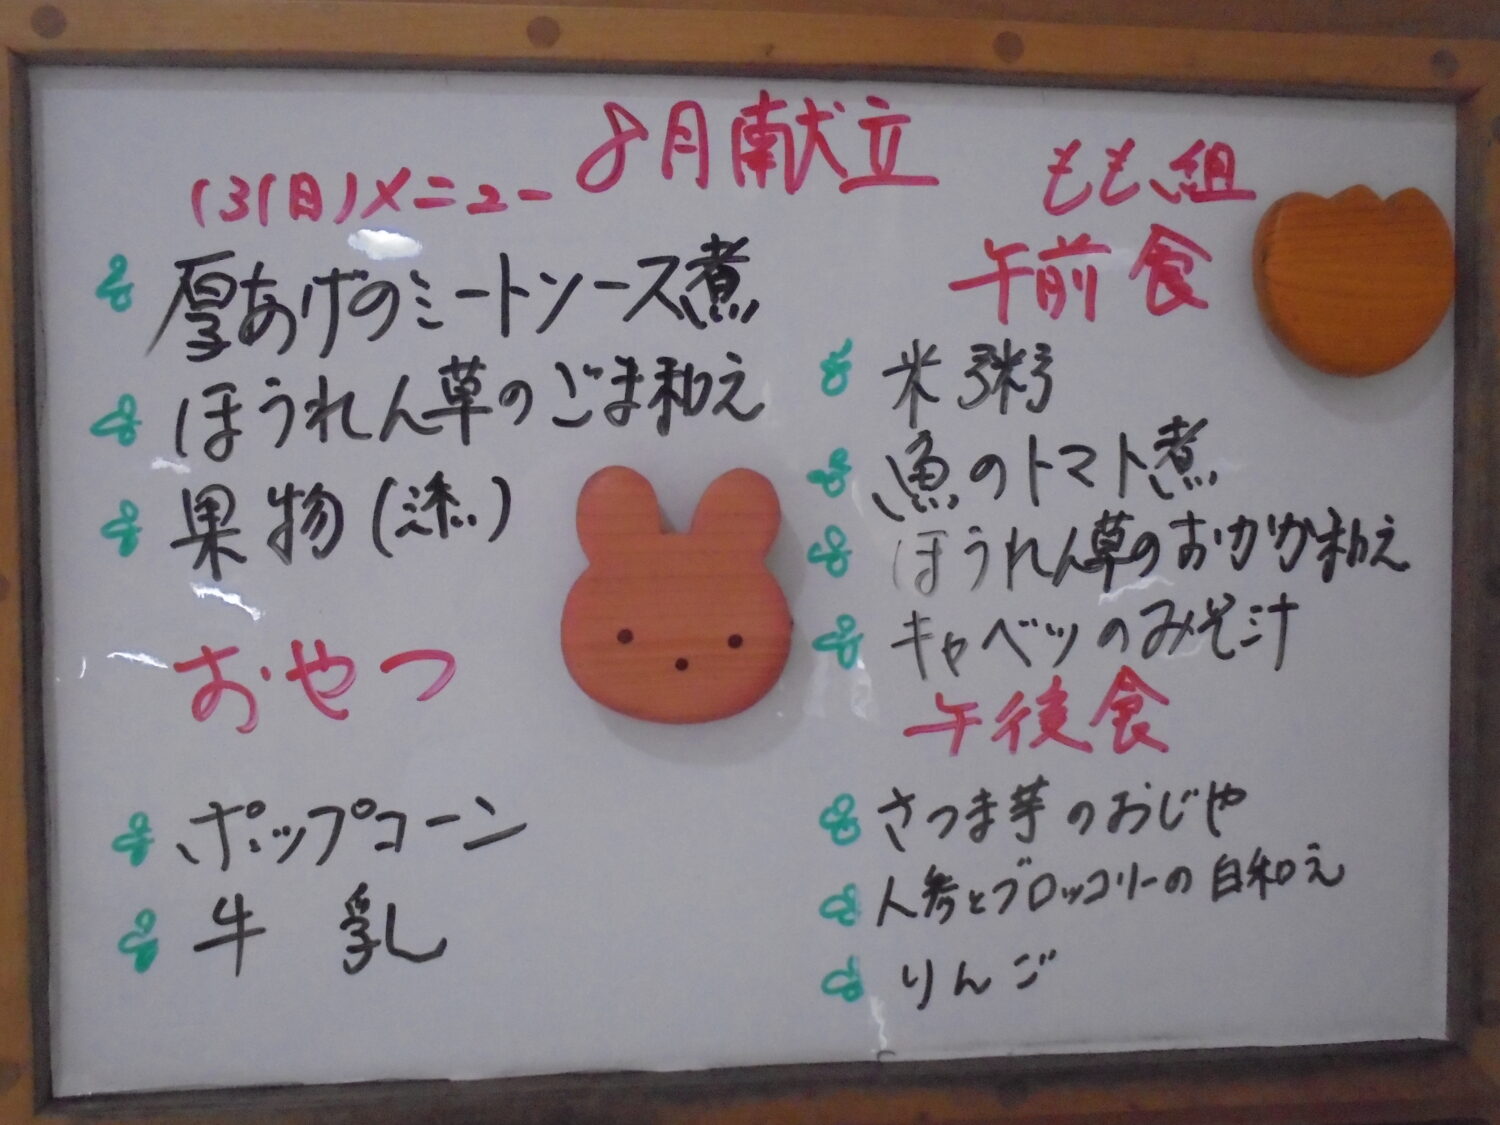 8月献立
(31日)メニュー
厚あげのミートソース煮
ほうれん草のごま和え
果物(添)
おやつ
ポップコーン
牛 乳
もも組
午前食
米粥
魚のトマト煮
ほうれん草のおかか和え
キャベツのみそ汁
午後食
さつま芋のおじや
人参とブロッコリーの白和え
りんご